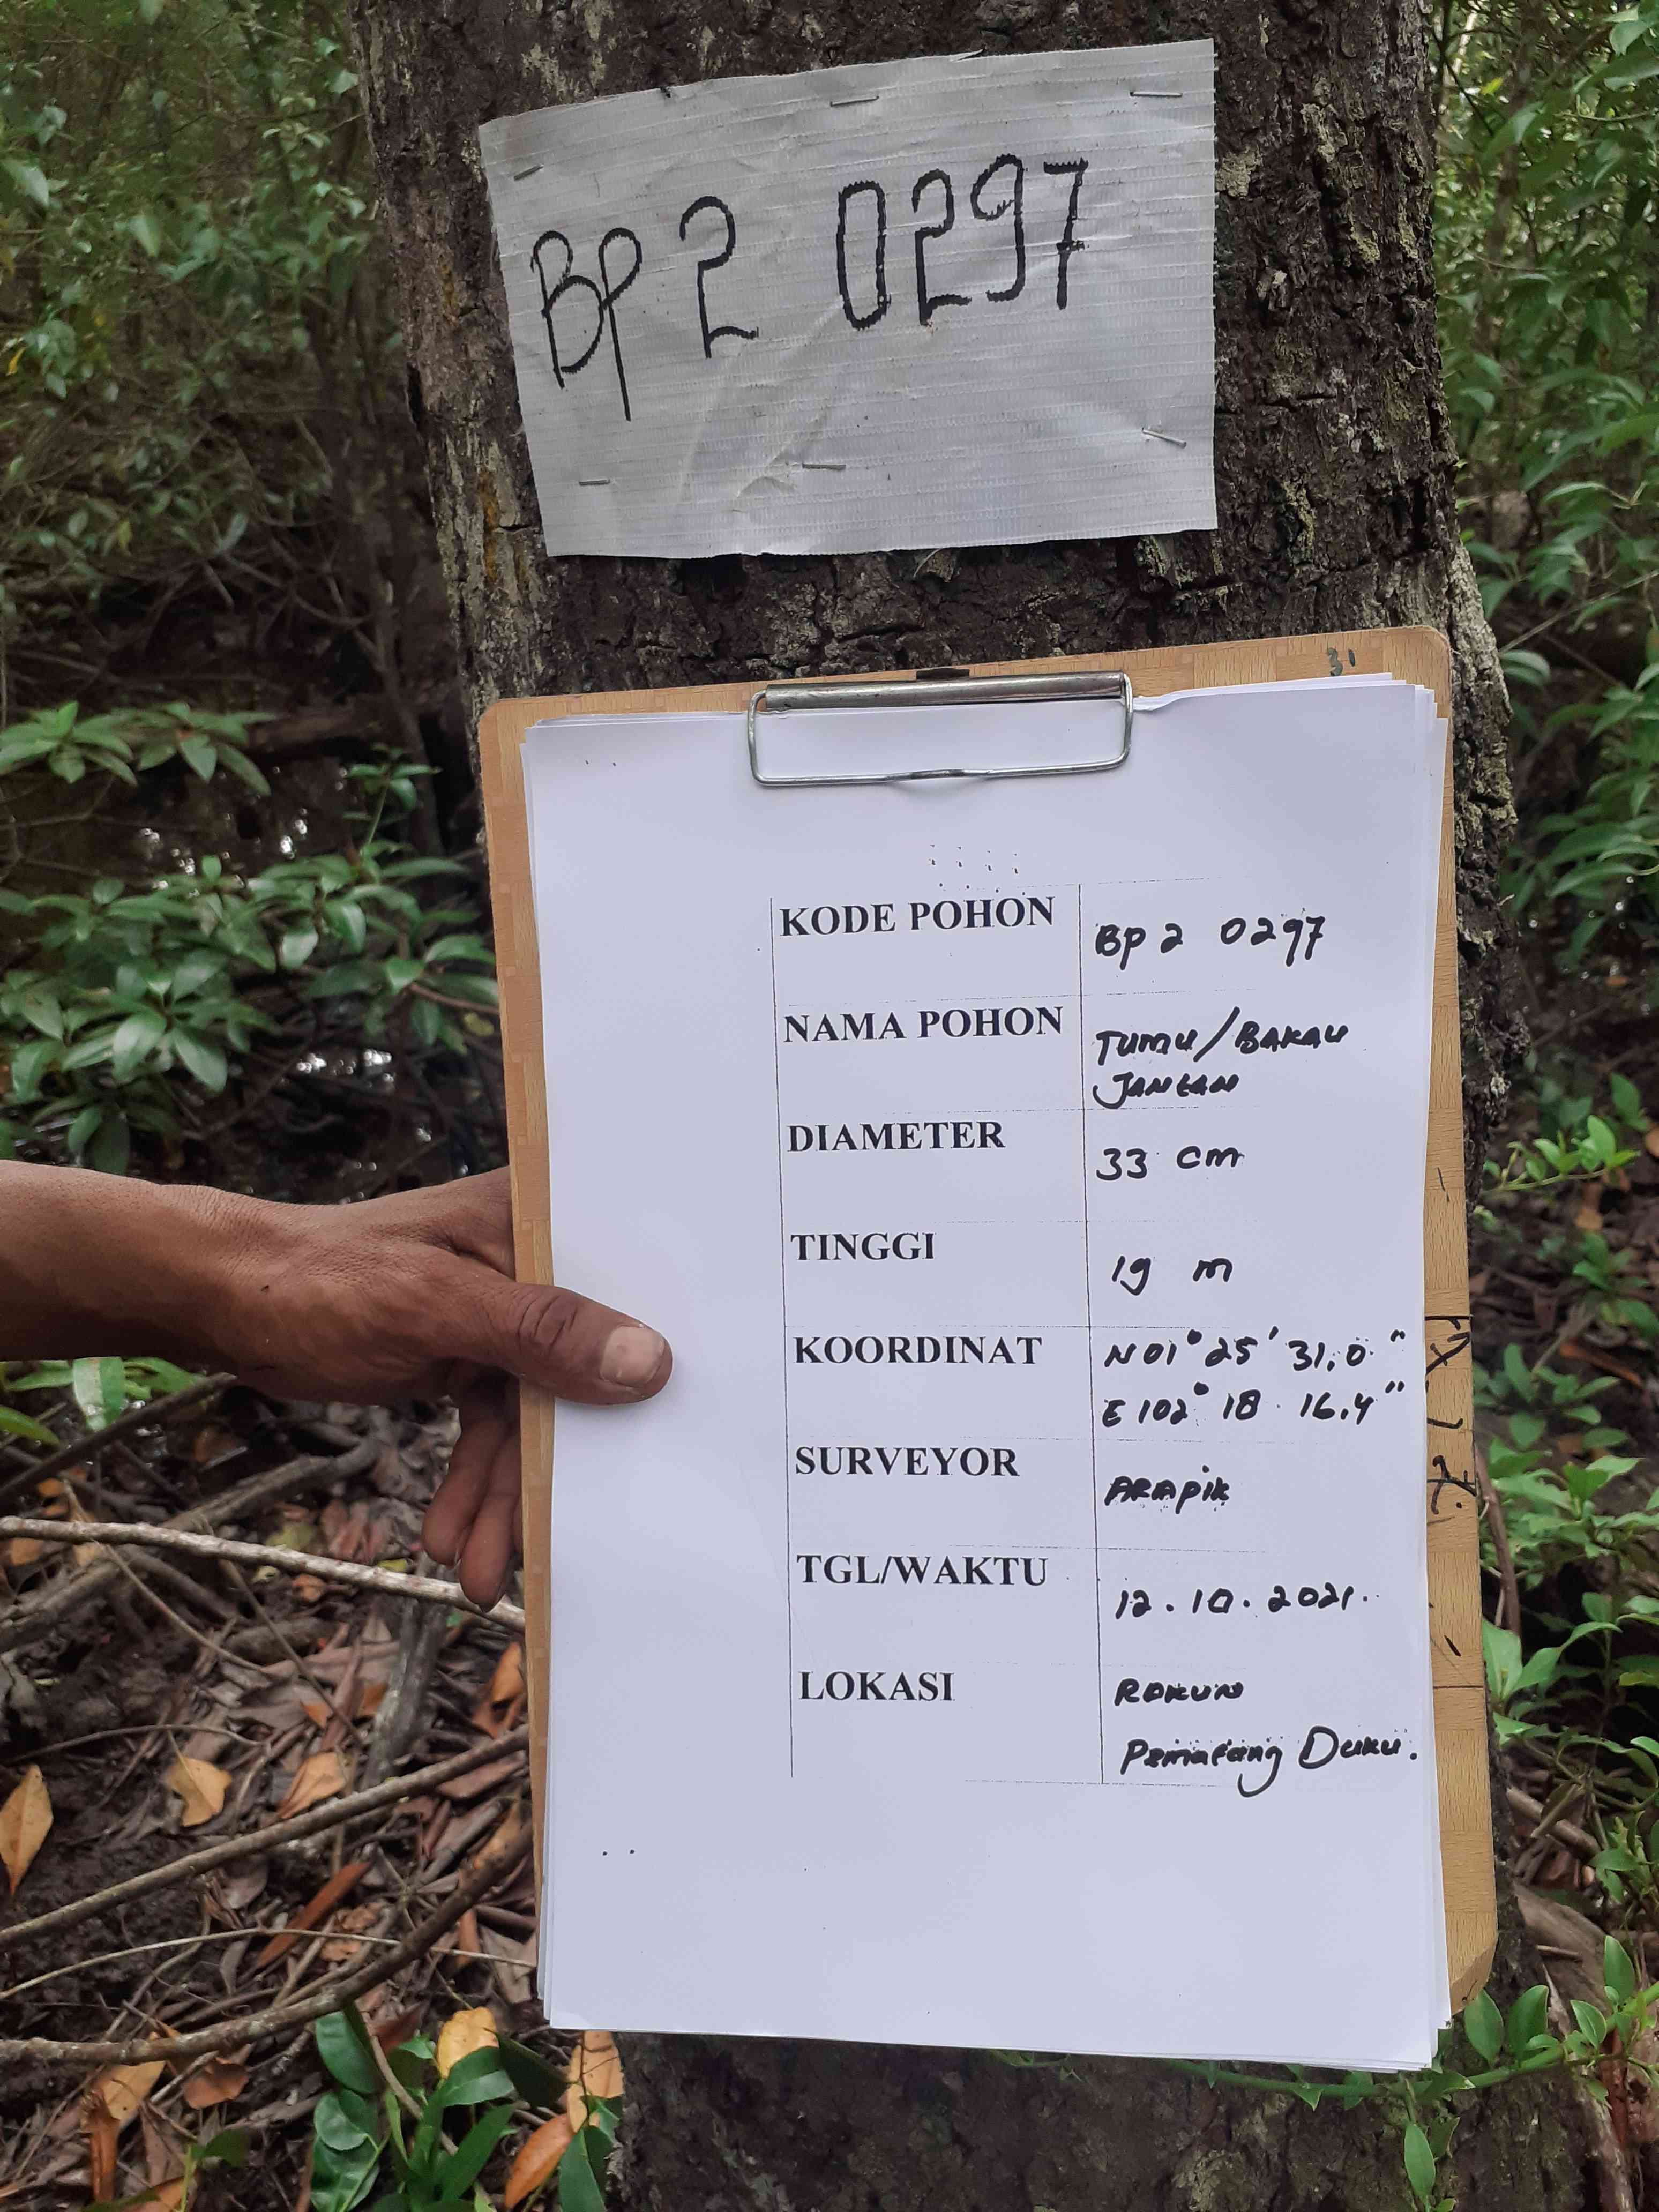 BP 2 0297
31
KODE POHON BP 2 0297
NAMA POHON TUMU/BAKAU
JANTAN
DIAMETER 33 cm
TINGGI 19 m
KOORDINAT N 01° 25' 31,0"
E 102° 18 16,4"
SURVEYOR ARAPIK
TGL/WAKTU 12.10.2021.
LOKASI
Pematang Duku.